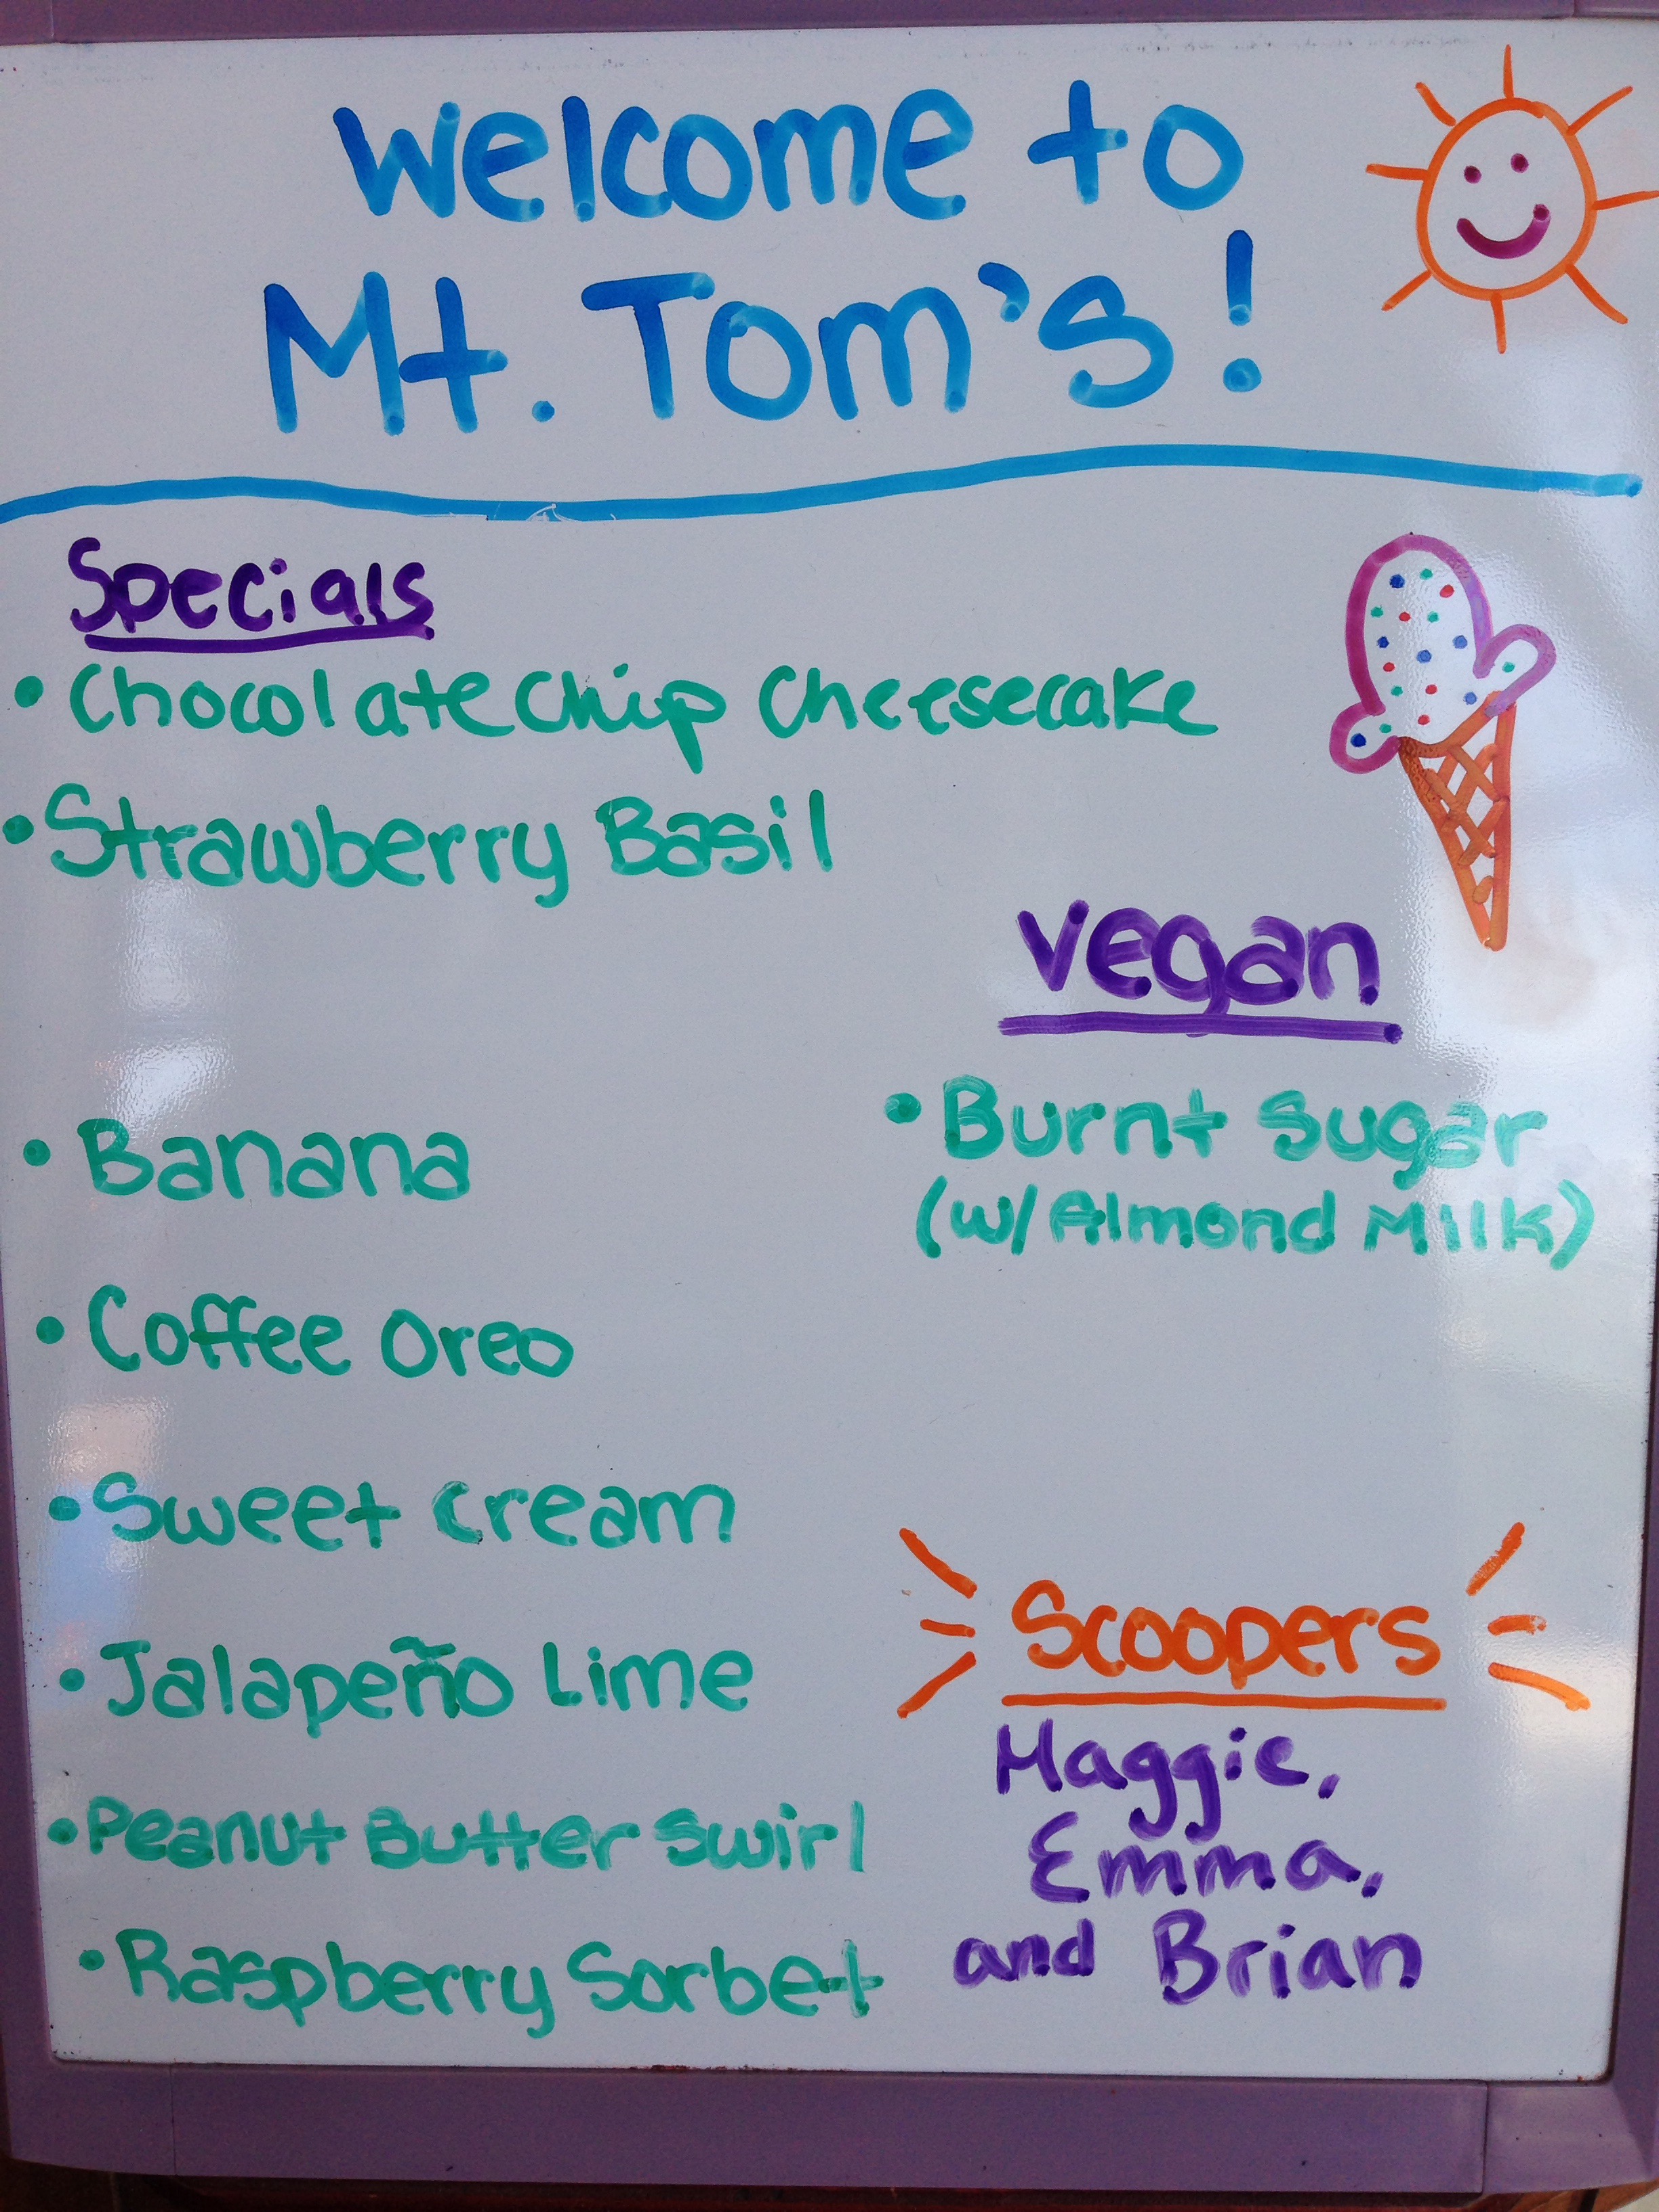 Welcome to
Mt. Tom's!
Specials
• Chocolate Chip Cheesecake
• Strawberry Basil
• Banana
• Coffee Oreo
• Sweet Cream
• Jalapeño Lime
• Peanut Butter Swirl
• Raspberry Sorbet
Vegan
• Burnt Sugar
(w/ Almond Milk)
Scoopers
Maggie,
Emma,
and Brian